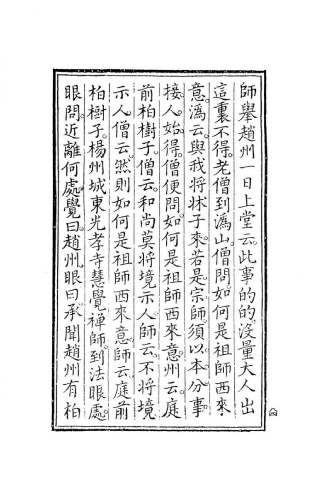 師舉趙州一日上堂云此事的的沒量大人出
這裏不得老僧到溈山僧問如何是祖師西來
意溈云與我將牀子來若是宗師須以本分事
接人始得僧便問如何是祖師西來意州云庭
前柏樹子僧云和尚莫將境示人師云不將境
示人僧云然則如何是祖師西來意師云庭前
柏樹子楊州城東光孝寺慧覺禪師到法眼處
眼問近離何處覺曰趙州眼曰承聞趙州有柏